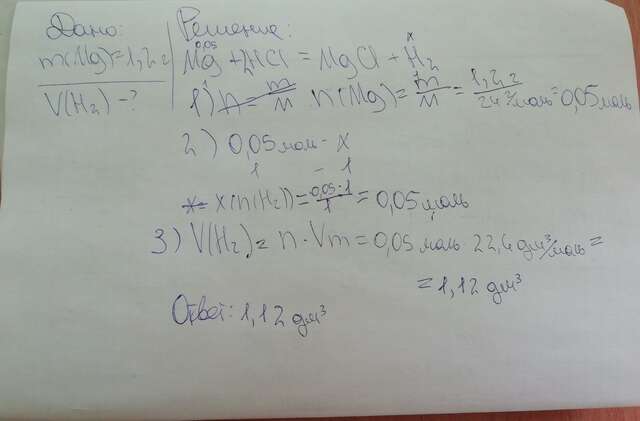 Дано:
m(Mg)=1,2 г
V(H₂)-?
Решение:
0,05 x
Mg + 2HCl = MgCl + H₂
1 1
1) n = m/M n(Mg) = m/M = 1,2 г / 24 г/моль = 0,05 моль
2) 0,05 моль - x
1 - 1
x= x(n(H₂)) = 0,05·1 / 1 = 0,05 моль
3) V(H₂) = n · Vm = 0,05 моль · 22,4 дм³/моль =
= 1,12 дм³
Ответ: 1,12 дм³